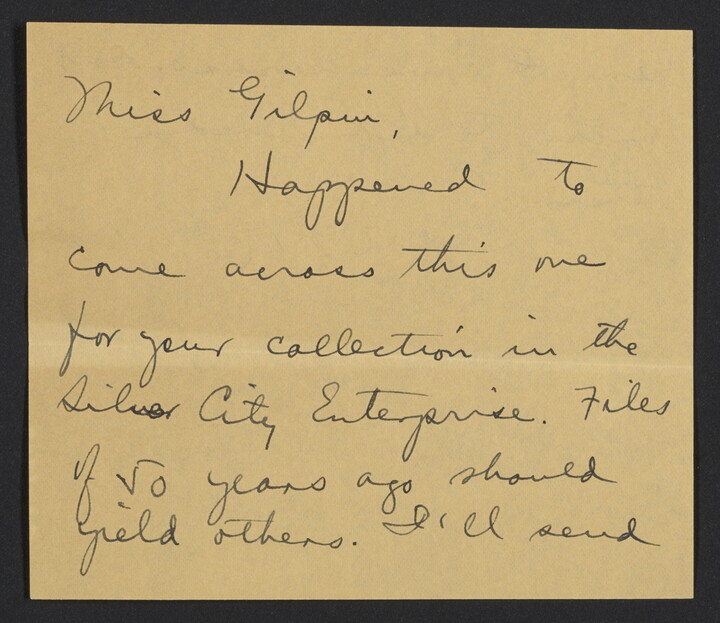 Miss Gilpin,
Happened to
come across this one
for your collection in the
Silver City Enterprise. Files
of 50 years ago should
yield others. I'll send